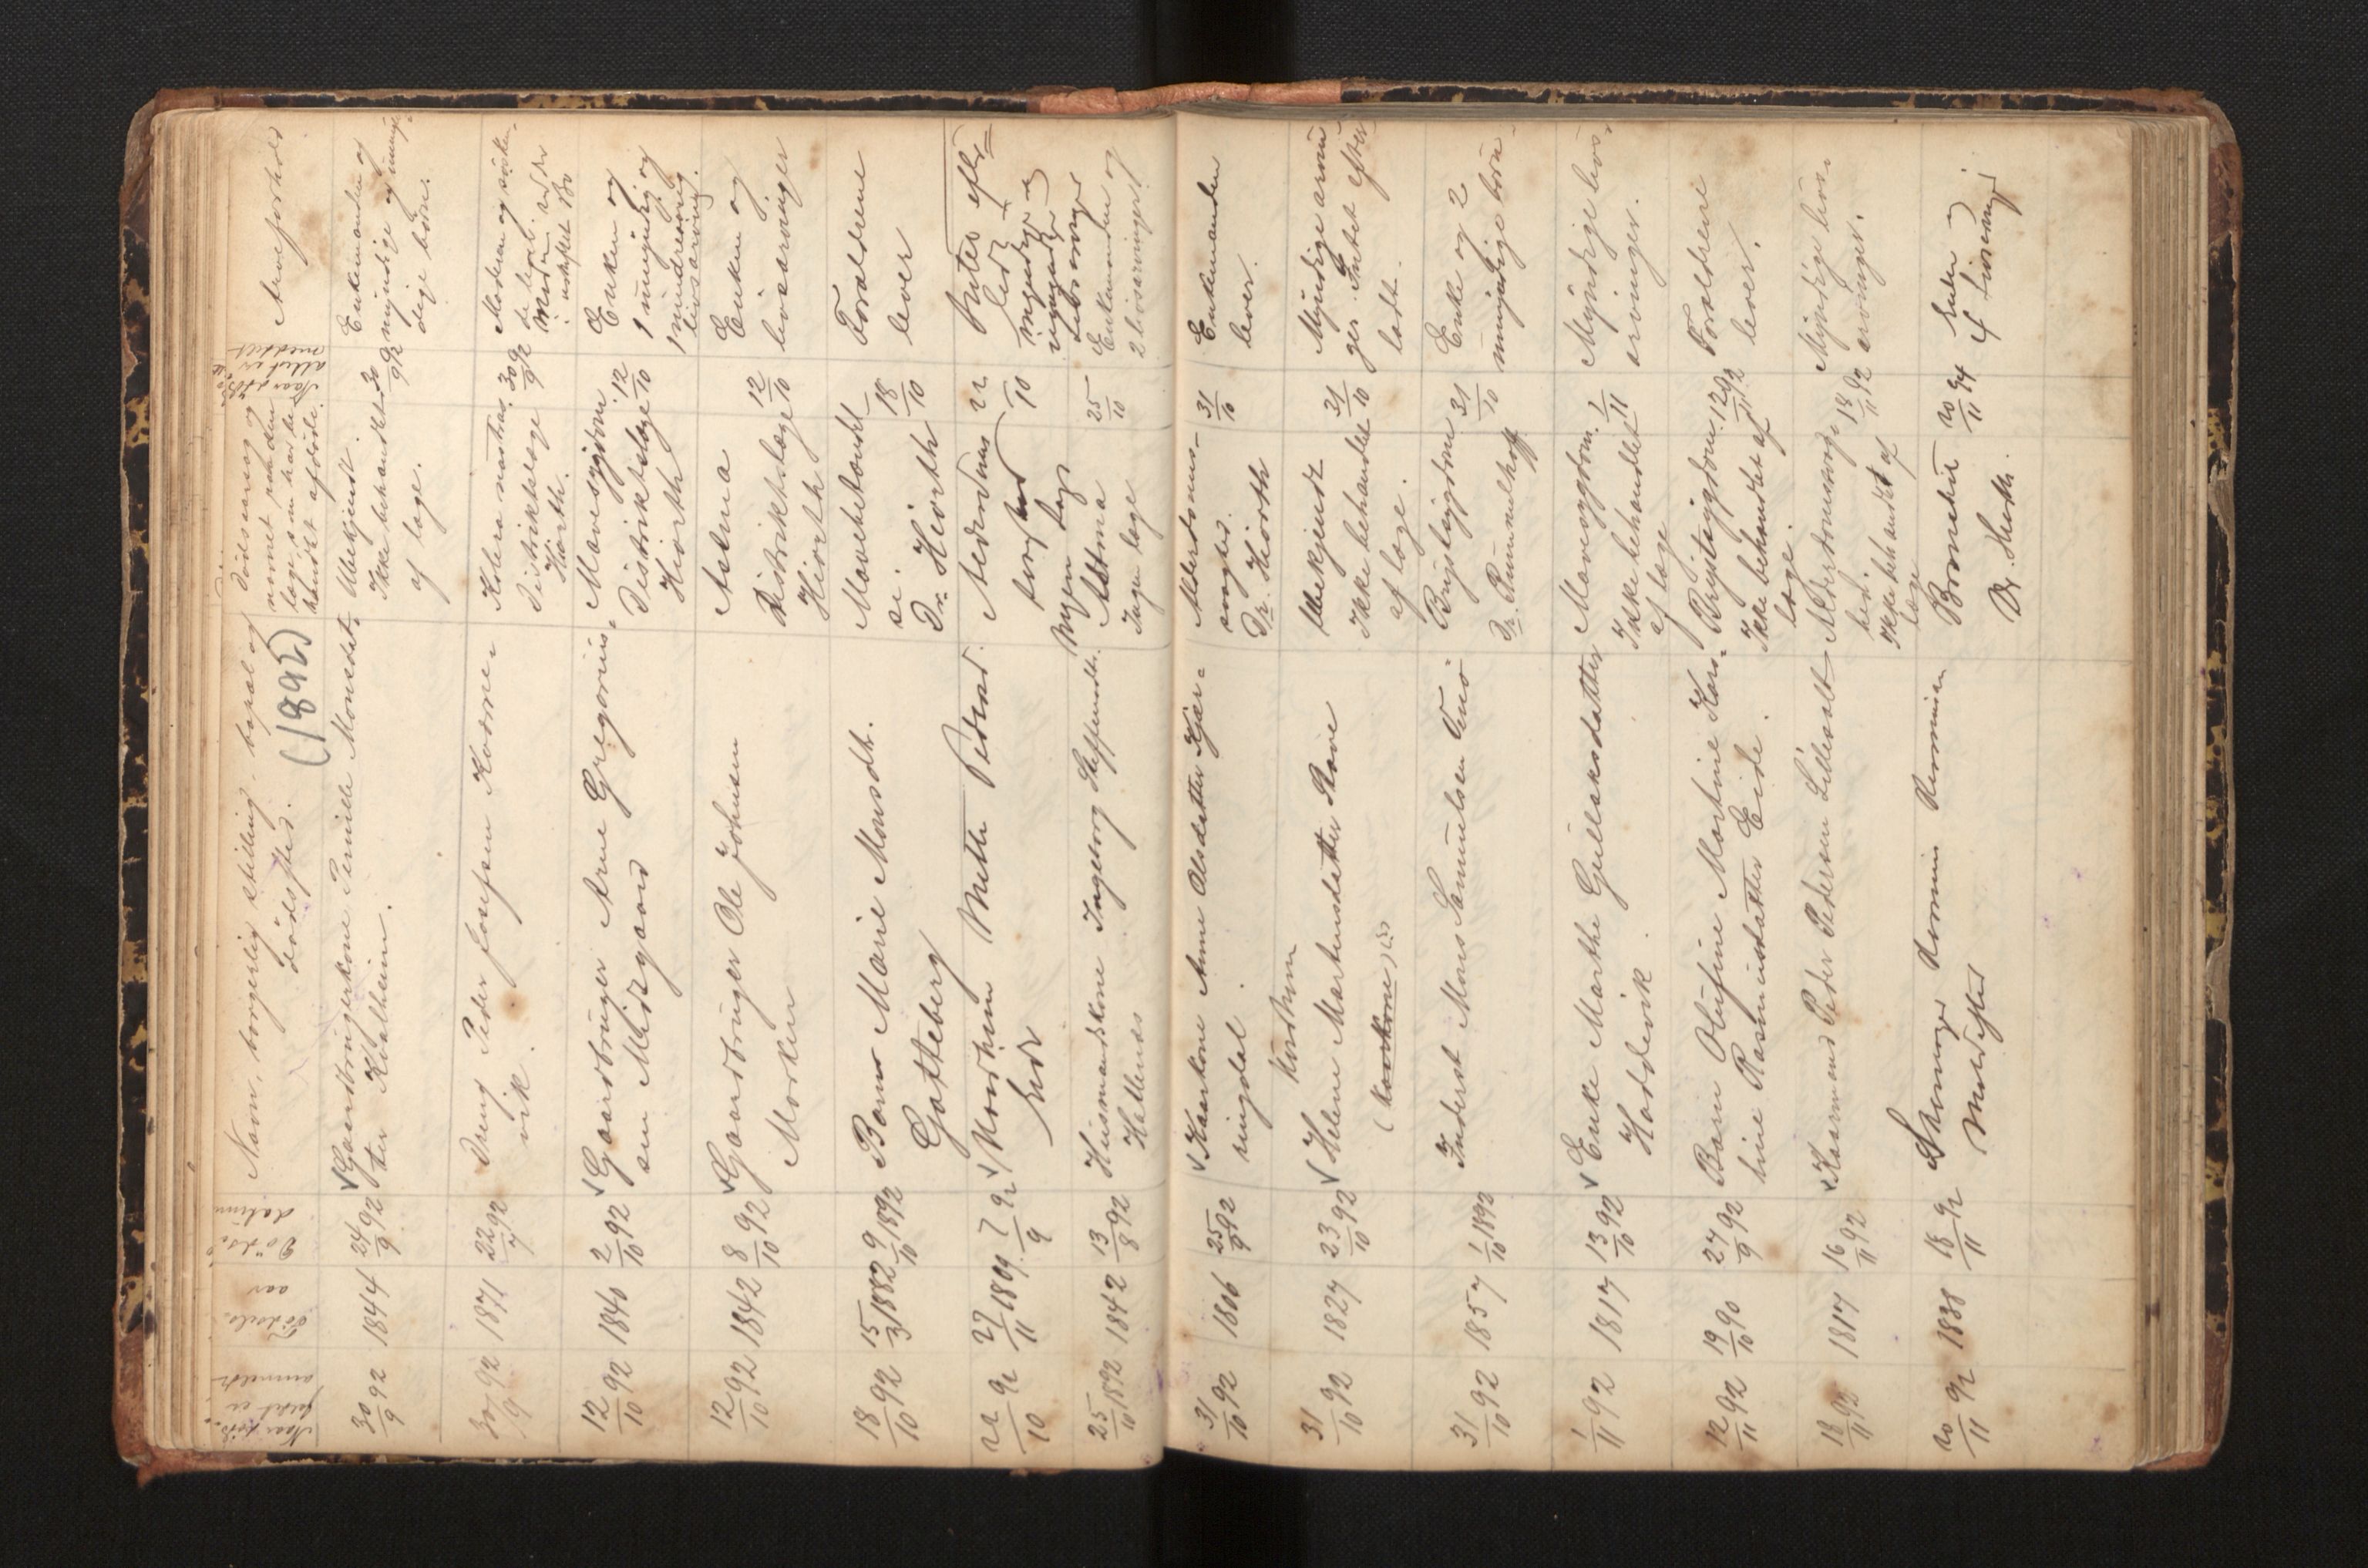 Naar döds-
faldet er
anmeldt
Födsels-
aar
Döds-
datum
Navn, borgerlig stilling, bopæl og
dödssted.
(1892)
Dödsaarsag og
navnet paa den
læge, som har be-
handlet afdöde.
Naar
attest er
meddelt
Arveforhold
30/9 92
1844
24/9 92
Gaardbrugerkone Pernille Monsdat-
ter Kvalheim.
Ubekjendt.
Ikke behandlet
af læge.
30/9 92
Enkemanden og
myndige og umyn-
dige börn.
30/9 92
1871
22/7 92
Dreng Peder Josefsen Kosne-
vik.
Kolera nostras,
Distriktslæge
Hiorth.
30/9 92
Moderen og sösken-
de lever.
12/10 92
1840
2/10 92
Gaardbruger Arne Gregorius-
sen Midtgaard
Mavesygdom.
Distriktslæge
Hiorth
12/10
Enken og
1 umyndig og
1 mindreaarig
livsarving.
12/10 92
1842
8/10 92
Gaardbruger Ole Johnsen
Morken
Astma
Distriktslæge
Hiorth
12/10
Enken og
livsarvinger
18/10 92
15/3 1882
9/10 1892
Barn Marie Monsdt.
Gotteberg
Mavebetændel-
se.
Dr. Hiorth
18/10
Forældrene
lever
22/10 92
27/11 1809
7/9 92
Mette Pedersd.
Eide
Alderdoms
Ingen læge
22/10
Intet efter-
ladt
myndige og
umyndige
livsarvinger
25/10 1892
1842
13/8 92
Husmandskone Ingeborg Steffensdtr.
Hellenes
Asthma
Ingen læge
25/10
Enkemanden og
2 livsarvinger.
31/10 92
1806
25/9 92
Kaarkone Anne Olsdatter Kjær-
ringdal.
Alderdoms-
svaghed.
Dr. Hiorth
31/10
Enkemanden
lever.
31/10 92
1827
23/10 92
Helene Martensdatter Stave
(Kaarkone)
Ubekjendt
Ikke behandlet
af læge.
31/10
Myndige arvin-
ger. Intet efter-
ladt.
31/10 92
1857
1/10 1892
Inderst Mons Samuelsen
Brystsygdom
Dr. Rummelhoff
31/10
Enke og 2
umyndige börn.
1/11 92
1817
13/10 92
Enke Marthe Gullaksdatter
Hoddevik.
Mavesygdom.
Ikke behandlet
af læge
1/11
Myndige livs-
arvinger.
12/11 92
19/10 90
27/9 92
Barn Olufine Martine Kar-
sine Rasmusdatter Eide.
Brystsygdom.
Ikke behandlet af
læge.
12/11 92
Forældrene
lever.
18/11 92
1817
16/11 92
Kaarmand Peder Pedersen Lilleaalt
Alderdomssvag-
hed.
Ikke behandlet af
læge
18/11 92
Myndige livs-
arvinger.
20/11 92
1838
18/11 92
Bronchit
Dr. Hiorth.
Enken og
4 livsarving.